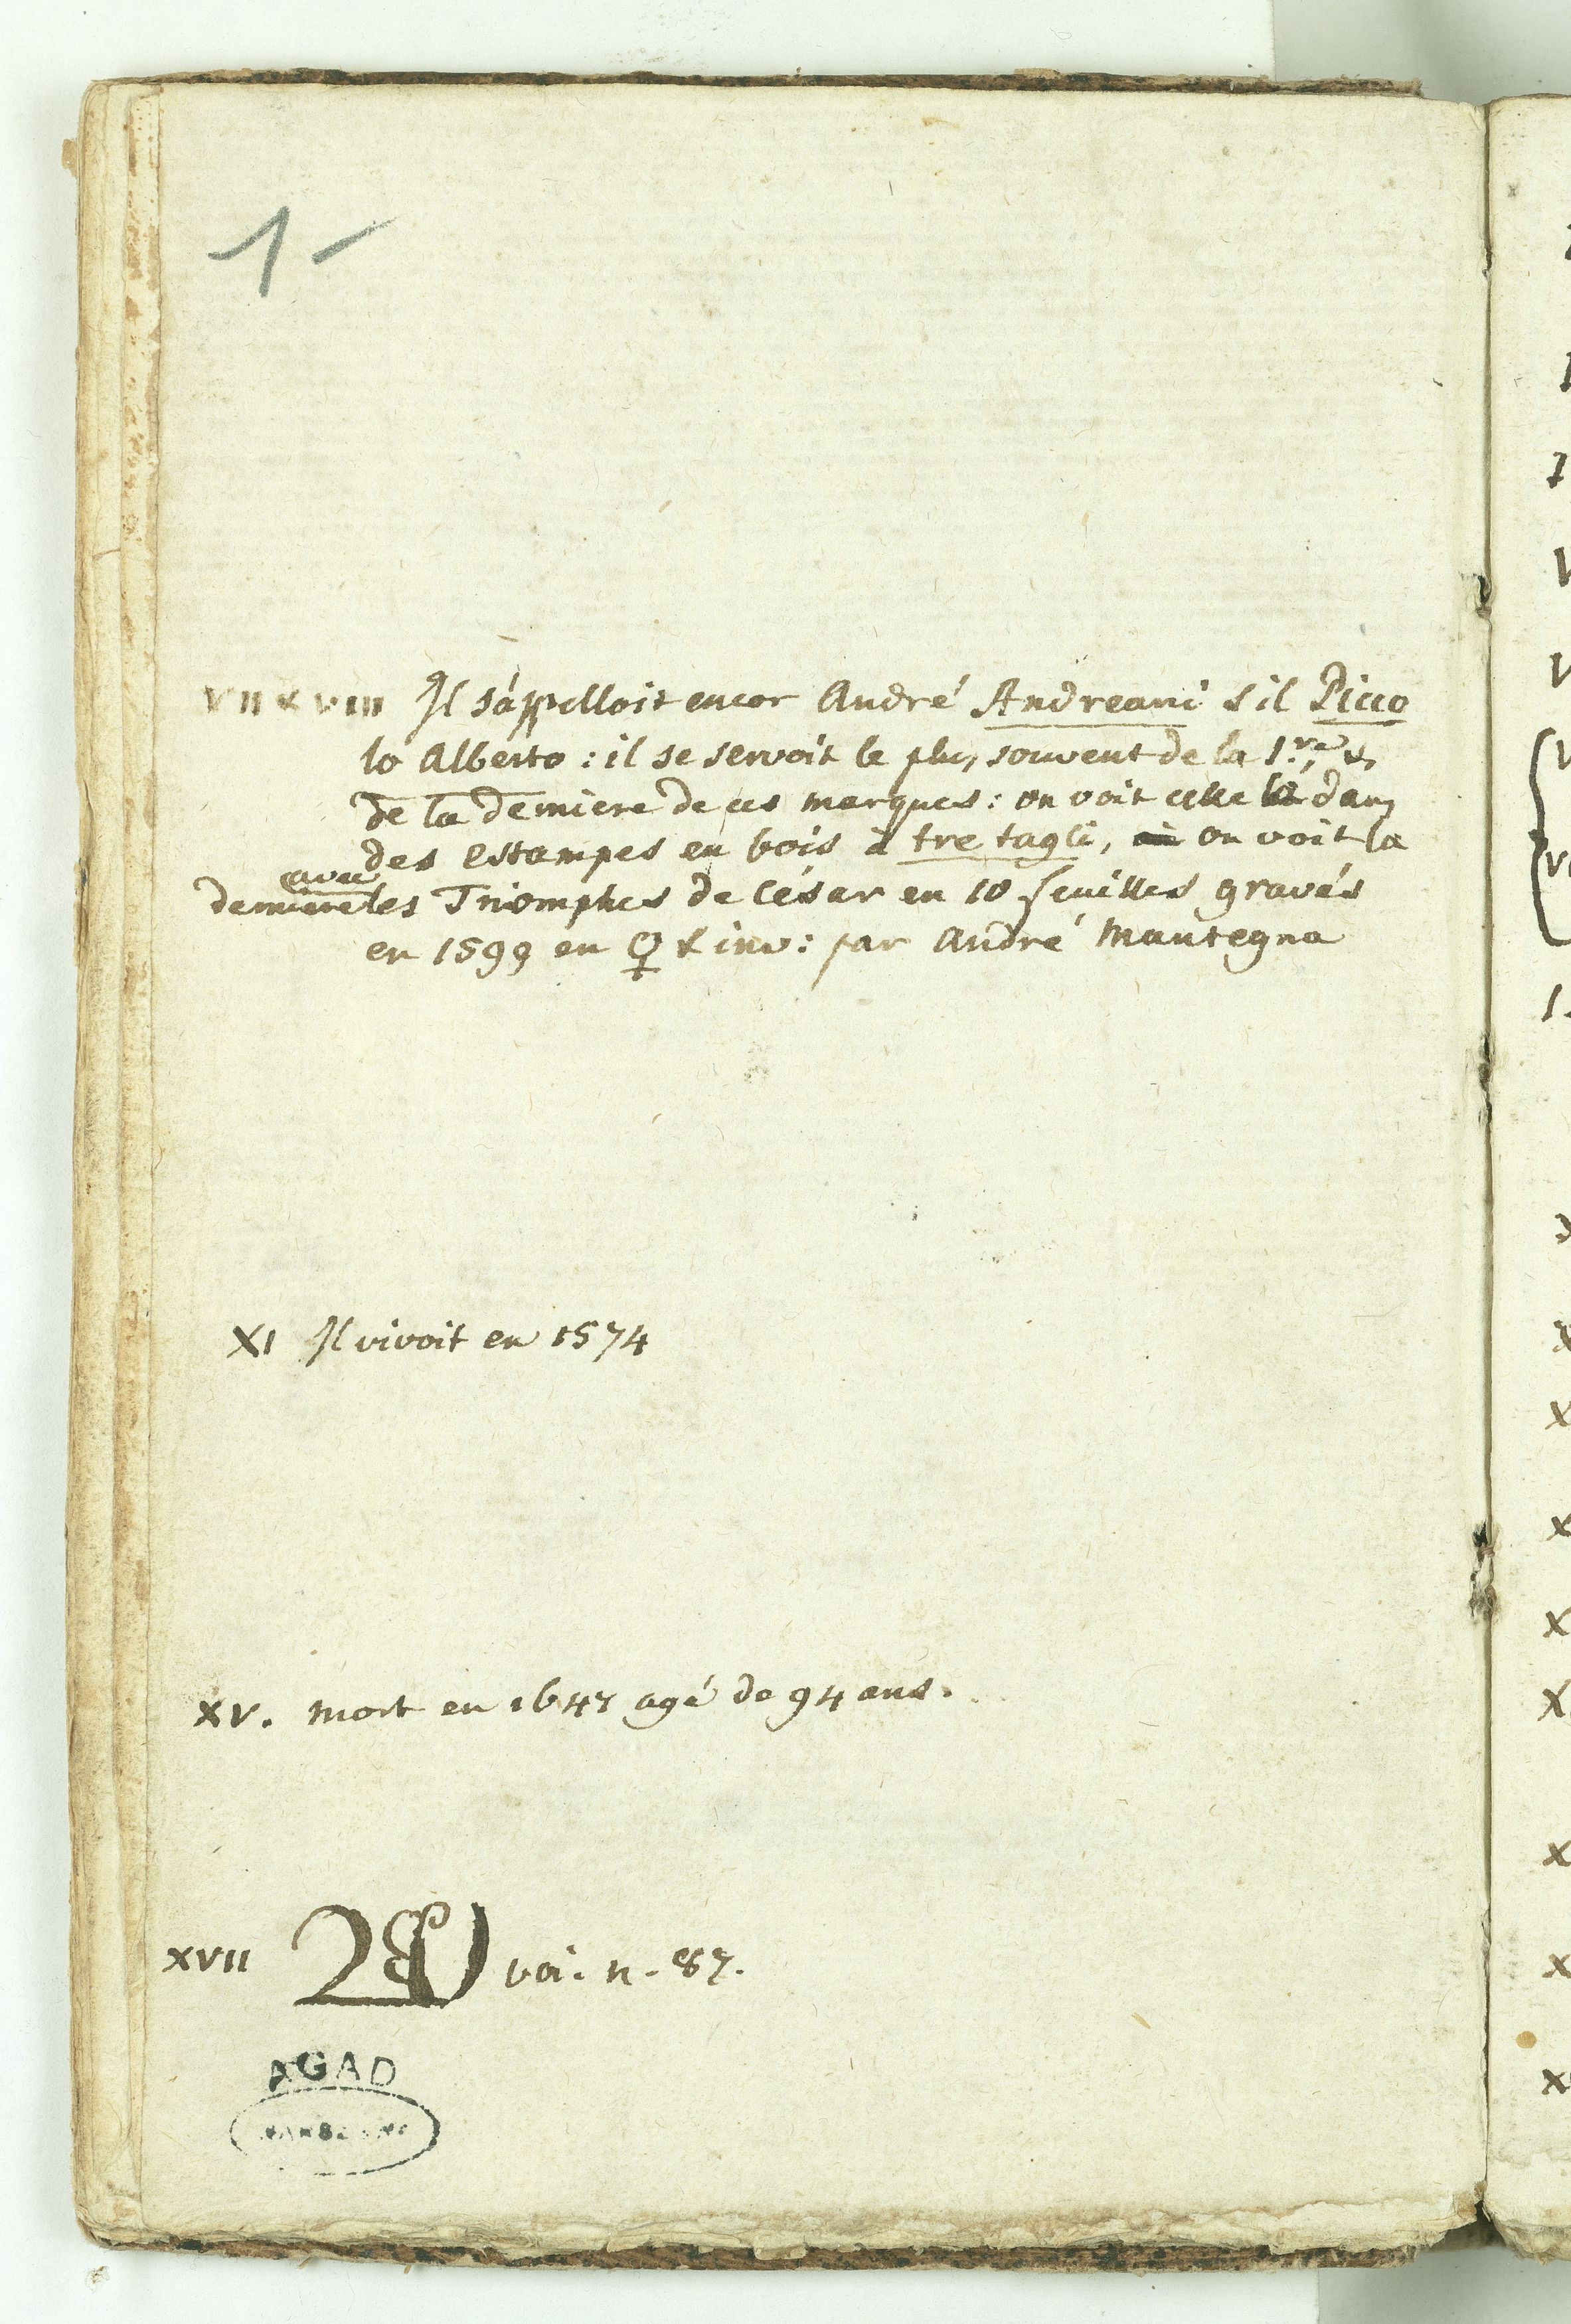 1-
VII & VIII Il s'appelloit encor André Andreani s il Picco
lo Alberto : il se servoit le plus souvent de la 1.re &
de la derniere de ces marques : on voit celle là dans
des estampes en bois à tre tagli, on voit la
avec
derniere les Triomphes de César en 10 feuilles gravés
en 1599 en ♀ & inv: par André Mantegna
XI Il vivoit en 1574
XV. mort en 1647 agé de 94 ans.
XVII voi. n. 87.
AGAD